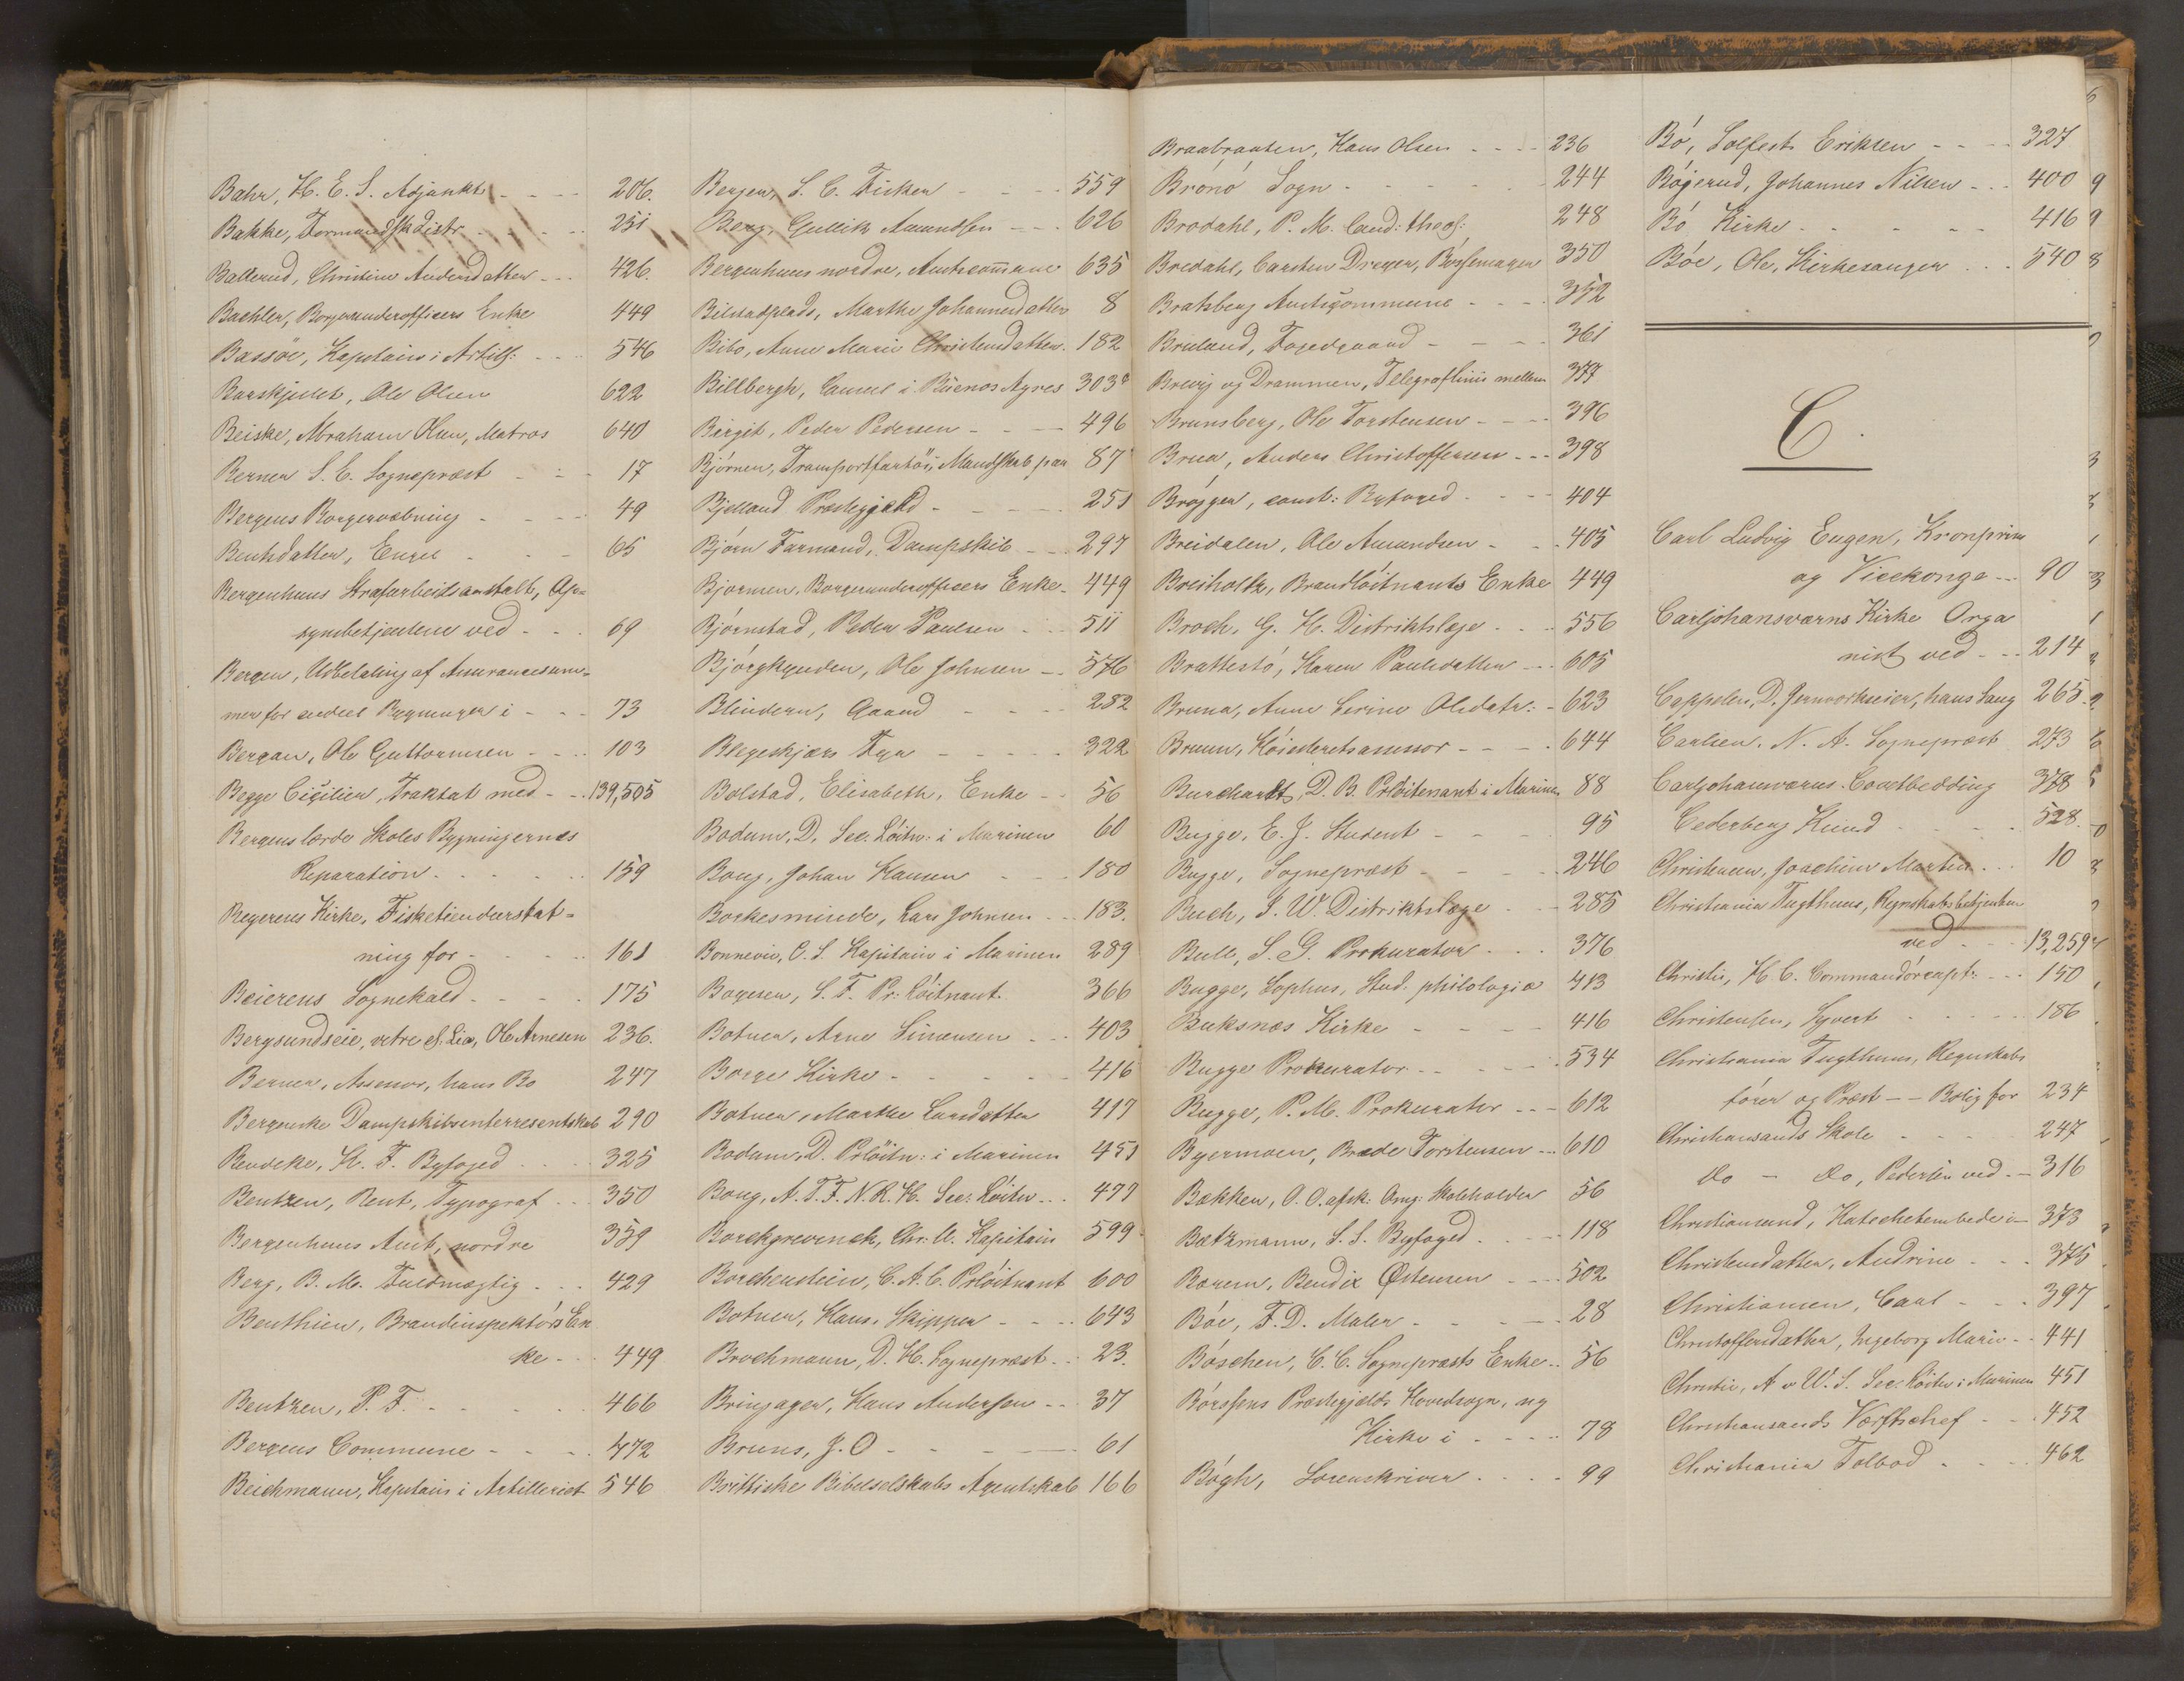 Bahr, H. E. S. Adjunkt - - - 206.
Bakke, Formandsk.distr. - - - 251
Ballerud, Christine Andersdatter - - 426.
Bachler, Borgerunderofficers Enke 449
Bassøe, Kapitain i Artill: - - - 546
Barskjulet, Ole Olsen 622
Beiske, Abraham Olsen, Matros 640
Berner S. C. Sognepræst - - 17
Bergens Borgervæbning - - - 49
Bentsdatter, Engel - - - 65
Bergenhuus Strafarbeidsanstalt, Op=
synsbetjentene ved - - - 69
Bergen, Udbetaling af Assurancesum=
mer for endeel Bygninger i - - - 73
Bergan, Ole Guttormsen - - - 103
Begge Cicilier, Traktat med - - 139,505
Bergens lærde Skoles Bygningernes
Reparation - - - - 159
Beyerens Kirke, Fisketienderstat=
ning for - - - - 161
Beierens Sognekald - - - - 175
Bergsundseie, vstre el. Lia, Ole Arnesen 236.
Berner, Assessor, hans Bo 247
Bergenske Dampskibsinterresentskab 290
Bendeke, K. F. Byfoged - - - 325
Bentzen, Bent, Typograf - - - 350
Bergenhuus Amt, nordre 359
Berg, B. M. Fuldmægtig - - - 429
Benthien, Brandinspektörs En
ke - - - 449
Bentzen, P. F. - - - - 466
Bergens Commune - - - - 472
Beichmann, Kapitain i Artilleriet 546
Bergen, S. C. Ficker - - - 559
Berg, Gullik Amundsen - - - 626
Bergenhuus nordre, Amtscom̅une 635
Bilstadplads, Marthe Johannesdatter 8
Bibo, Anne Marie Christensdatter. 182
Billbergh, Consul i Büenos Ayres 303
Birgit, Peder Pedersen - - - 496
Björnen, Transportfartöi, Mandskab paa 87
Bjelland Præstegjæld - - - 251
Bjørn Farmand, Dampskib - - 297
Bjørnsen, Borgerunderofficers Enke - 449
Björnstad, Peder Paulsen - - - 511
Björgkynden, Ole Johnsen - - 576
Blindern, Gaard - - - - 282
Blegeskjærs Fyr - - - - 322
Bolstad, Elisabeth, Enke - - 56
Bodum, D. Sec: Löitn: i Marinen 60
Boug, Johan Hansen - - - 180
Borkesminde, Lars Johnsen - - 183.
Bonnevie, C. S. Kapitain i Marinen 289
Boyesen, S. F. Pr: Löitnant. 366
Botner, Arne Simensen - - - 403
Borge Kirke - - - - - 416
Botner, Marthe Larsdatter 417
Bodum, D. Prlöitn: i Marinen 451
Boug, A. T. F. N. R. H. Sec: Löitn - - 477
Borchgrevinck, Chr: U. Kapitain 599
Borchenstein, C. A. C. Prlöitnant 600
Botner, Hans, Skipper - - - - 643
Brochmann, D. H. Sognepræst - - 23.
Bringager, Hans Andersen - - 37
Bruns, J. O - - - - - 61
Brittiske Bibelselskabs Agentskab 166
Braabraaten, Hans Olsen - - - - 236
Brönö Sogn - - - - - 244
Brodahl, P. M. Cand: theol: 248
Bredahl, Carsten Dreyer, Börsemager 350
Bratsberg Amtscommune - - - - 352
Bruland, Fogedgaard - - - - 361
Brevig og Drammen, Telegraflinie mellem 377
Brunsberg, Ole Torstensen - - - 396
Bruer, Anders Christoffersen - - - 398
Brögger, const: Byfoged - - - 404
Breidalen, Ole Amundsen - - - 405
Breiholtz, Brandlöitnants Enke 449
Broch, G. H. Distriktslæge - - - 556
Brattestö, Karen Paulsdatter - - - 605
Bruna, Anne Serine Olsdatr: - 623
Bruun, Höiesteretsassessor - - - - 644
Burchardt, D. B. Prlöitenant i Marinen 88
Bugge, E. J. Student - - - - 95
Bugge, Sognepræst - - - - 246
Buch, J. W. Distriktslæge - - - 285
Bull, S. G. Prokurator - - - 376
Bugge, Sophus, Stud. philologiæ 413
Buksnæs Kirke - - - - 416
Bugge Prokurator - - - - 534
Bugge, P. M. Prokurator - - - 612
Byermoen, Brede Torstensen - - - 610
Bækken, O. O. afsk. Omg: Skoleholder 56
Bætzmann, S. S. Byfoged - - - - 118
Bærem, Bendix Østensen - - - - 502
Böe, F. D. Maler - - - - - 28
Böschen, C. C. Sognepræsts Enke - - 56
Börsens Præstegjelds Hovedsogn, ny
Kirke i - - - - 78
Bögh, Sorenskriver - - - - 99
Bö, Solfest Eriksen - - - - 327
Bögerud, Johannes Nilsen - - - 400
Bö Kirke - - - - - 416
Böe, Ole, Kirkesanger - - - 540
C.
Carl Ludvig Eugen, Kronprins
og Vicekonge - - 90
Carljohansværns Kirke Orga
nist ved - - - 214
Cappelen, D. Jernværkseier, hans Saug 265
Carlsen, N. A. Sognepræst 273
Carljohansværns Coastbedding 378
Cederberg Knud - - - - 528.
Christensen, Joachim Martin - - 10
Christiania Tugthuus, Regnskabsbetjenten
ved - - - 13,259
Christie, H. C. Commandörcapt: - - - 150
Christensen, Syvert - - - - 186
Christiania Tugthuus, Regnskabs
förer og Præst - - Bolig for 234
Christiansands Skole - - - - 247
do - do, Pedersen ved - - 316
Christiansund, Katechetembede i - 373
Christensdatter, Andrine - - - 375
Christiansen, Carl - - - 397
Christoffersdatter, Ingeborg Marie - - 441
Christie, A v W. S. Sec: Löitn: i Marinen 451
Christiansands Værftschef - - - 452
Christiania Tolbod - - - - 462